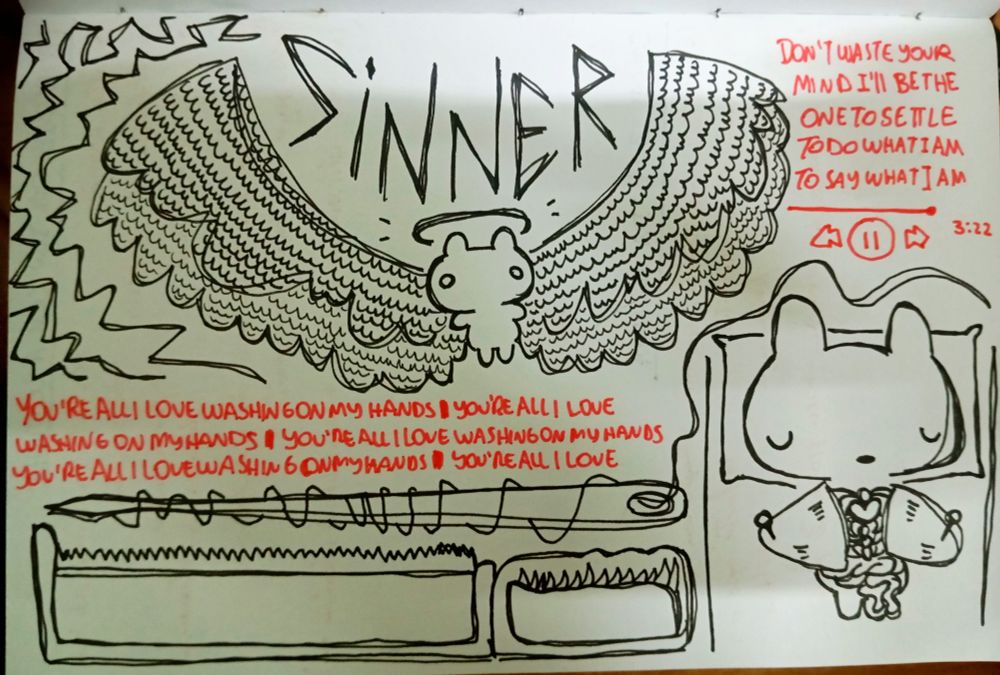 SINNER
DON'T WASTE YOUR
MIND I'LL BE THE
ONE TO SETTLE
TO DO WHAT I AM
TO SAY WHAT I AM
3:22
YOU'RE ALL I LOVE WASHING ON MY HANDS | YOU'RE ALL I LOVE
WASHING ON MY HANDS | YOU'RE ALL I LOVE WASHING ON MY HANDS
YOU'RE ALL I LOVE WASHING ON MY HANDS | YOU'RE ALL I LOVE